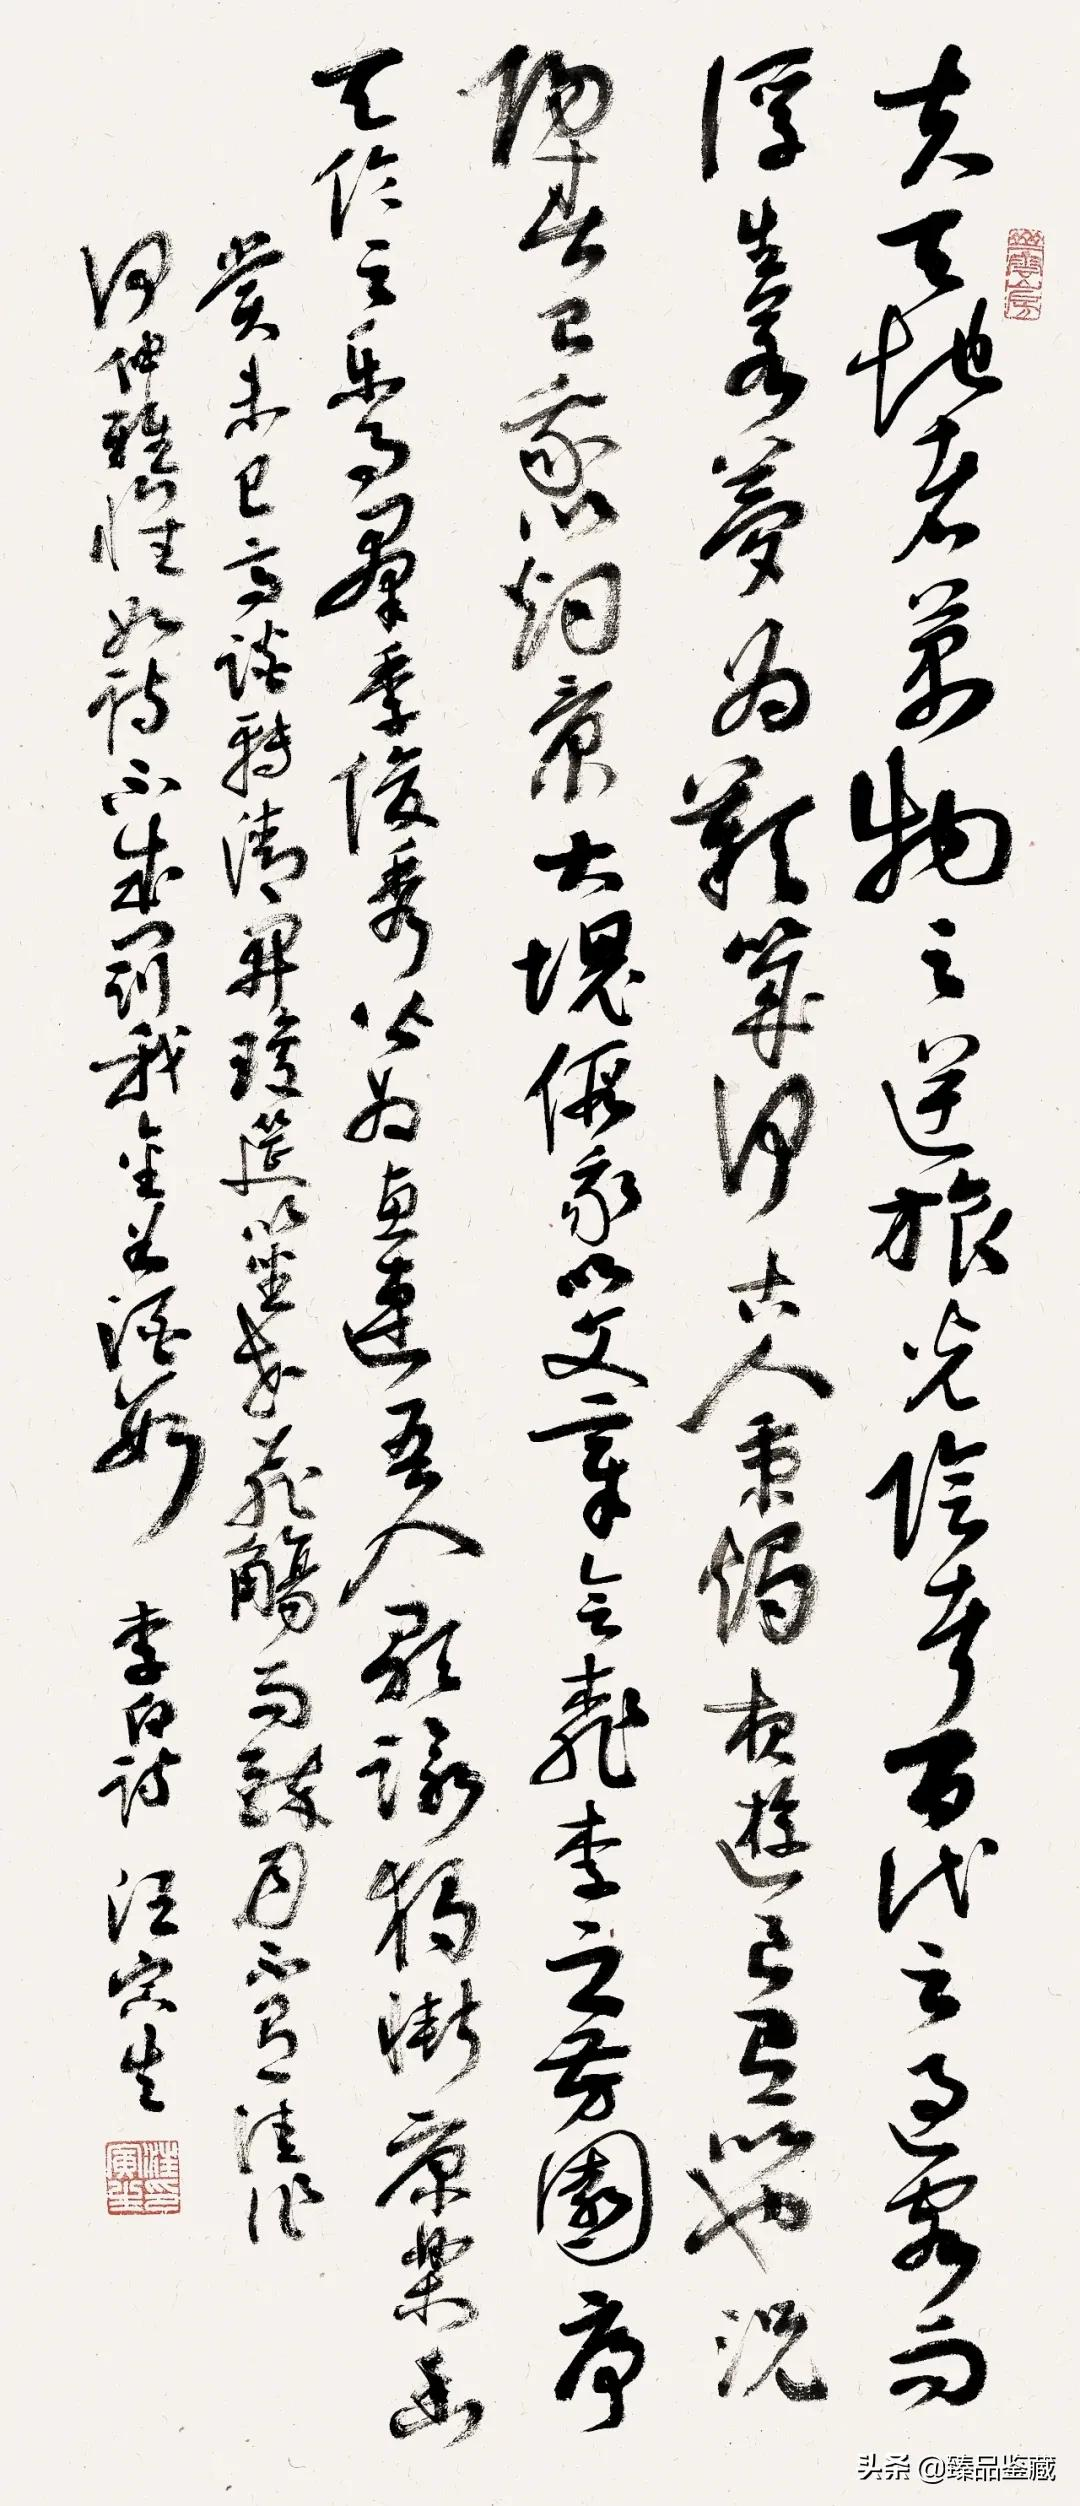 夫天地者萬物之逆旅光陰者百代之過客而
浮生若夢為歡幾何古人秉燭夜遊良有以也況
陽春召我以烟景大塊假我以文章會桃李之芳園序
天倫之樂事羣季俊秀以為惠連吾人歌詠獨慚康樂幽
賞未已高談轉清開瓊筵以坐花飛觴而醉月不有佳作
何伸雅懷如詩不成罰我金谷酒數 李白詩 汪寅生
汪寅生印
头条 @臻品鉴藏